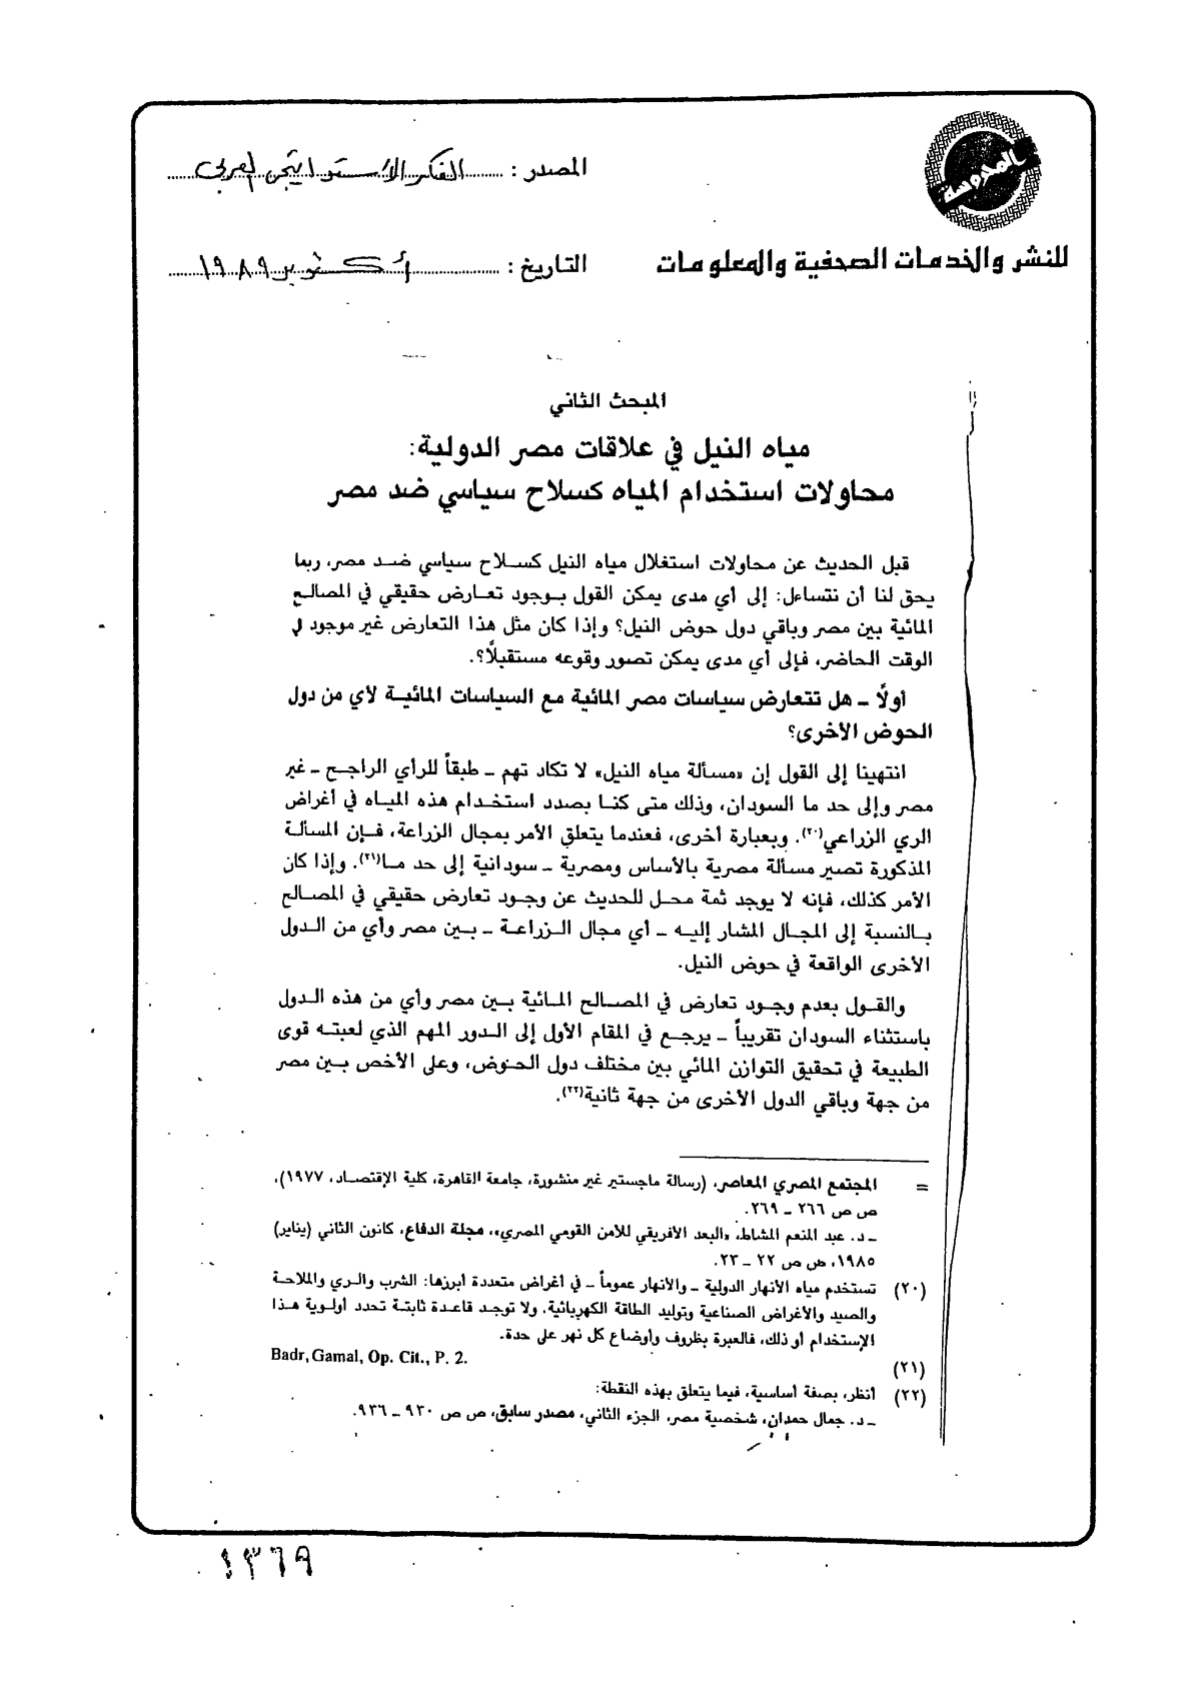 المحروسة
المصدر : الفكر الاستراتيجى العربى
للنشر والخدمات الصحفية والمعلومات
التاريخ : أكتوبر ١٩٨٩
المبحث الثاني
مياه النيل في علاقات مصر الدولية:
محاولات استخدام المياه كسلاح سياسي ضد مصر
قبل الحديث عن محاولات استغلال مياه النيل كسلاح سياسي ضد مصر، ربما
يحق لنا أن نتساءل: إلى أي مدى يمكن القول بوجود تعارض حقيقي في المصالح
المائية بين مصر وباقي دول حوض النيل؟ وإذا كان مثل هذا التعارض غير موجود في
الوقت الحاضر، فإلى أي مدى يمكن تصور وقوعه مستقبلاً؟.
أولاً ـ هل تتعارض سياسات مصر المائية مع السياسات المائية لأي من دول
الحوض الأخرى؟
انتهينا إلى القول إن «مسألة مياه النيل» لا تكاد تهم ـ طبقاً للرأي الراجح ـ غير
مصر وإلى حد ما السودان، وذلك متى كنا بصدد استخدام هذه المياه في أغراض
الري الزراعي(٢٠). وبعبارة أخرى، فعندما يتعلق الأمر بمجال الزراعة، فإن المسألة
المذكورة تصير مسألة مصرية بالأساس ومصرية ـ سودانية إلى حد ما(٢١). وإذا كان
الأمر كذلك، فإنه لا يوجد ثمة محل للحديث عن وجود تعارض حقيقي في المصالح
بالنسبة إلى المجال المشار إليه ـ أي مجال الزراعة ـ بين مصر وأي من الدول
الأخرى الواقعة في حوض النيل.
والقول بعدم وجود تعارض في المصالح المائية بين مصر وأي من هذه الدول
باستثناء السودان تقريباً ـ يرجع في المقام الأول إلى الدور المهم الذي لعبته قوى
الطبيعة في تحقيق التوازن المائي بين مختلف دول الحوض، وعلى الأخص بين مصر
من جهة وباقي الدول الأخرى من جهة ثانية(٢٢).
= المجتمع المصري المعاصر، (رسالة ماجستير غير منشورة، جامعة القاهرة، كلية الإقتصاد، ١٩٧٧)،
ص ص ٢٦٦ ـ ٢٦٩.
ـ د. عبد المنعم المشاط، «البعد الأفريقي للأمن القومي المصري»، مجلة الدفاع، كانون الثاني (يناير)
١٩٨٥، ص ص ٢٢ ـ ٢٣.
(٢٠) تستخدم مياه الأنهار الدولية ـ والأنهار عموماً ـ في أغراض متعددة أبرزها: الشرب والري والملاحة
والصيد والأغراض الصناعية وتوليد الطاقة الكهربائية. ولا توجد قاعدة ثابتة تحدد أولوية هذا
الإستخدام أو ذلك، فالعبرة بظروف وأوضاع كل نهر على حدة.
(٢١) Badr, Gamal, Op. Cit., P. 2.
(٢٢) أنظر، بصفة أساسية، فيما يتعلق بهذه النقطة:
ـ د. جمال حمدان، شخصية مصر، الجزء الثاني، مصدر سابق، ص ص ٩٣٠ ـ ٩٣٦.
١٣٦٩